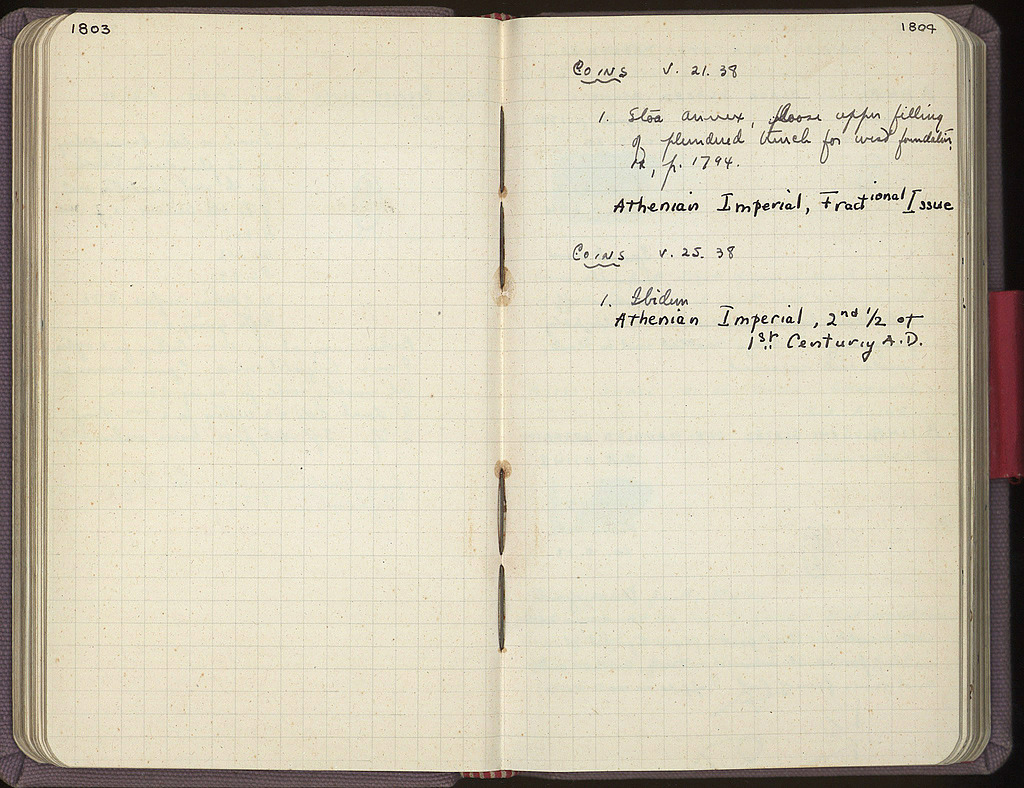 1803
1804
Coins V. 21. 38
1. Stoa annex, loose upper filling
of plundered trench for west foundation,
p. 1794.
Athenian Imperial, Fractional Issue
Coins V. 25. 38
1. Ibidem
Athenian Imperial, 2nd 1/2 of
1st Century A.D.